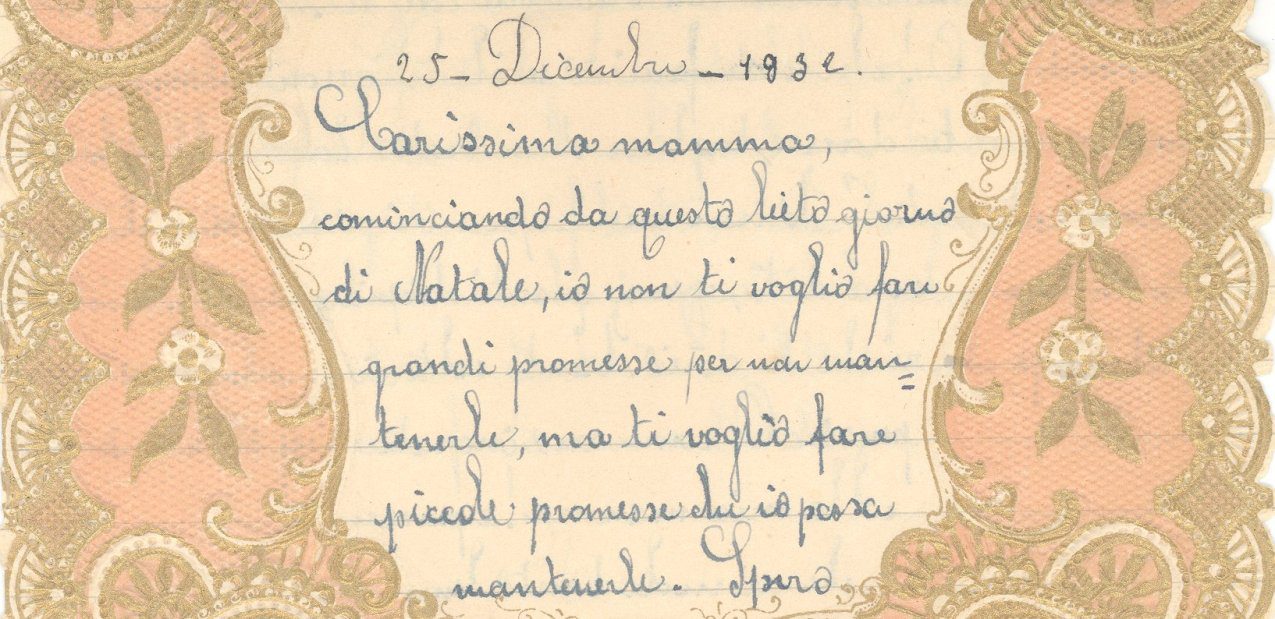 25 - Dicembre - 1932.
Carissima mamma,
cominciando da questo lieto giorno
di Natale, io non ti voglio fare
grandi promesse per non man=
tenerle, ma ti voglio fare
piccole promesse che io possa
mantenerle. Spero